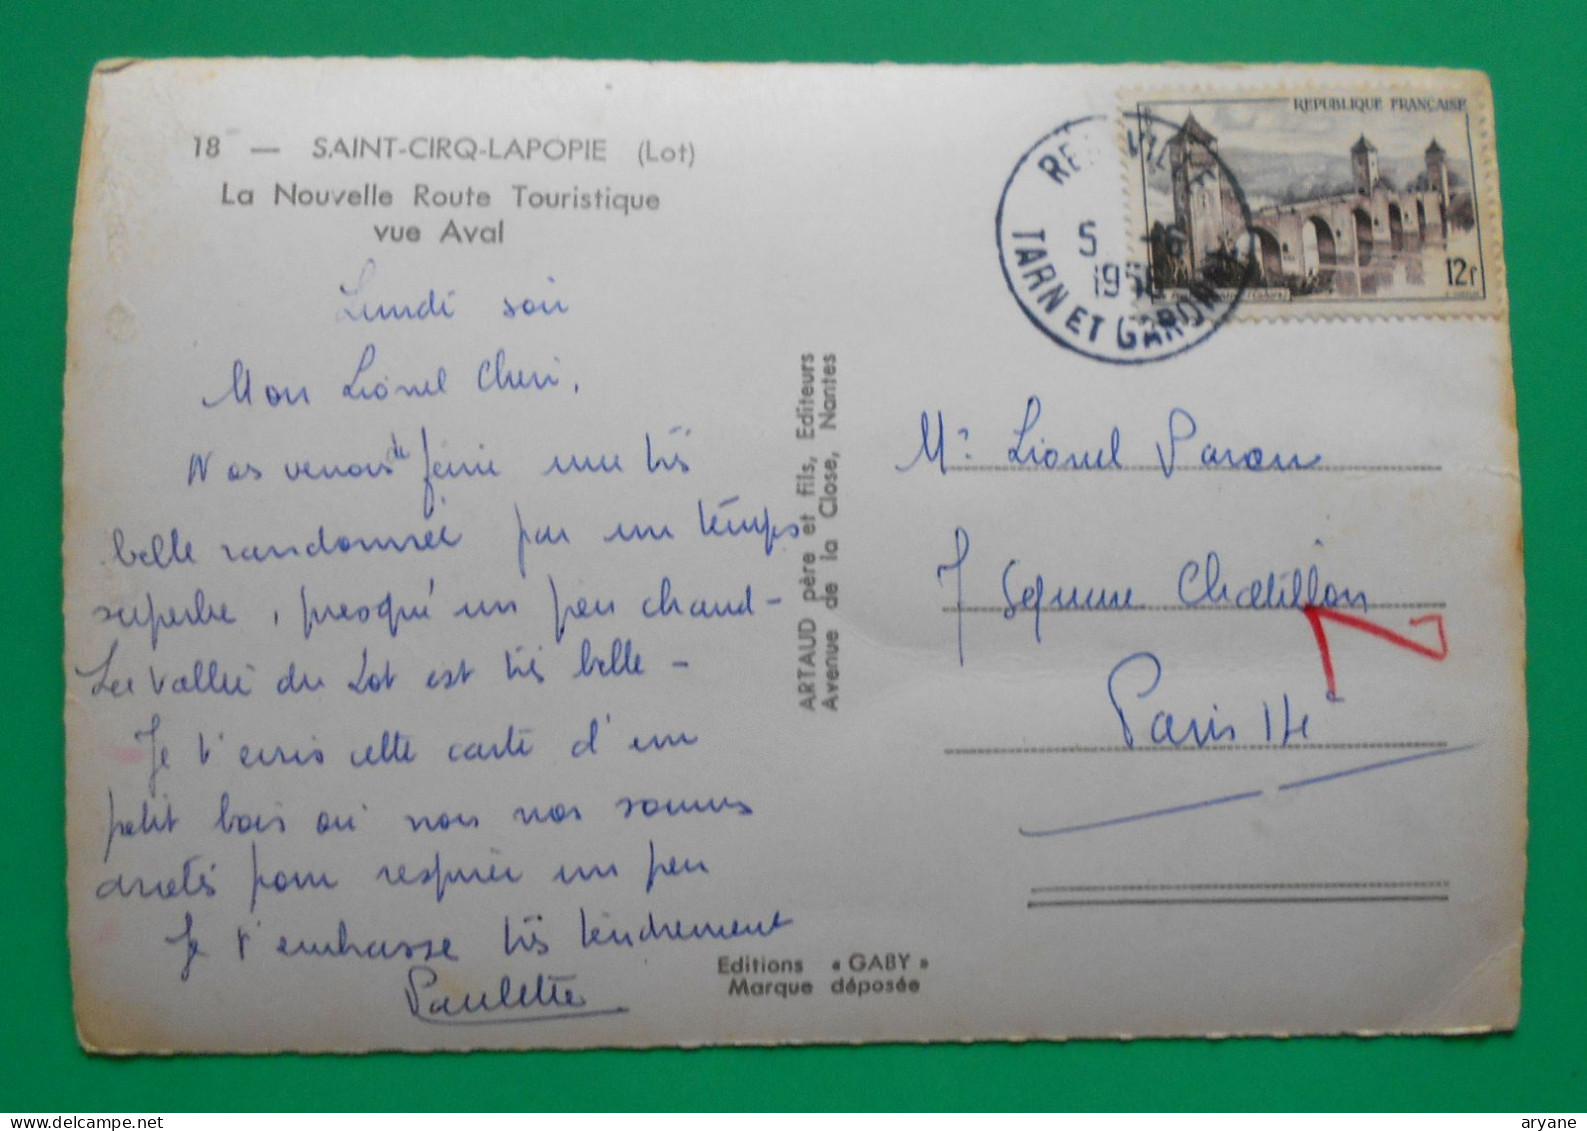 18 — SAINT-CIRQ-LAPOPIE (Lot)
La Nouvelle Route Touristique
vue Aval
Lundi soir
Mon Lionel Cheri,
Nos venons de faire une très
belle randonnée par un temps
superbe, presqué un peu chaud-
La Vallée du Lot est très belle -
Je t'ecris cette carte d'un
petit bois où nous nos sommes
arretés pour respirer un peu
Je t'embrasse très tendrement
Paulette
ARTAUD père et fils, Editeurs
Avenue de la Close, Nantes
Editions « GABY »
Marque déposée
REPUBLIQUE FRANÇAISE
12f
5
TARN ET GARONNE
Mr Lionel Paron
7 Square Chatillon
Paris 14e
www.delcampe.net
aryane